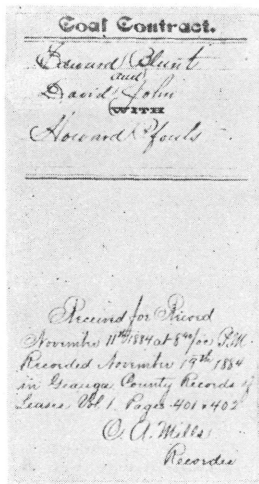 Coal Contract.
Edward Blunt
and
David John
WITH
Howard Pfouts
Received for Record
November 11th 1884 at 8 40/00 P.M.
Recorded November 19th 1884
in Geauga County Records of
Leases Vol 1. Pages 401 & 402
O. A. Mills
Recorder